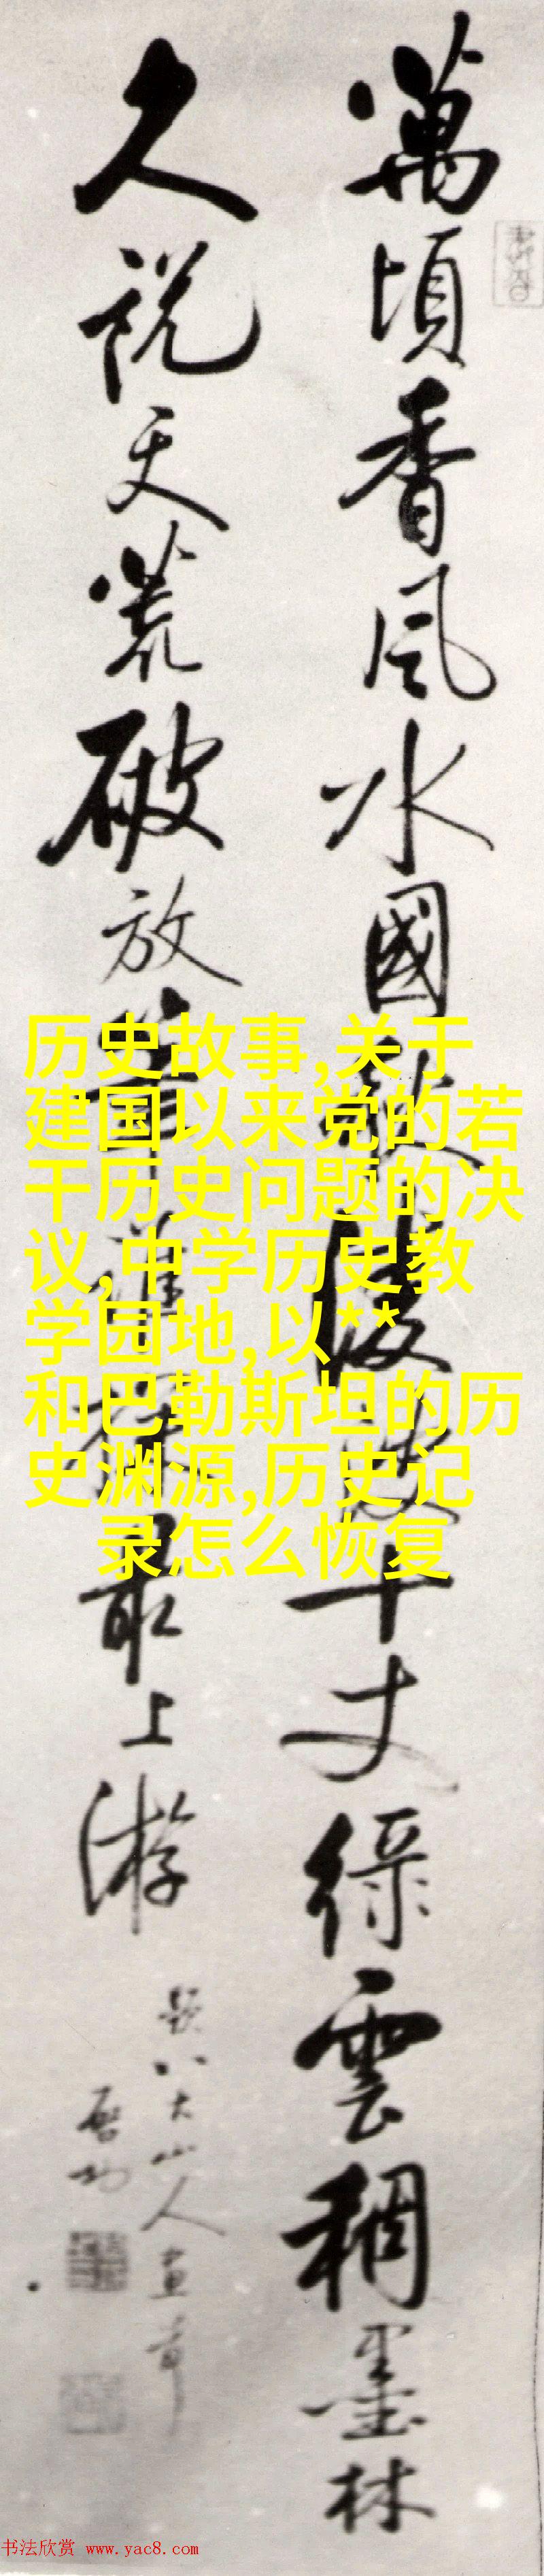 萬頃香風水國秋淩波十丈綠雲稠墨林
久說天荒破放筆誰探最上游
題八大山人畫荷
啓功
历史故事,关于
建国以来党的若
干历史问题的决
议,中学历史教
学园地,以**
和巴勒斯坦的历
史渊源,历史记
录怎么恢复
书法欣赏 www.yac8.com